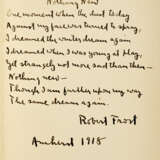 Nothing New
One moment when the dust today
Against my face was turned to spray,
I dreamed the winter dream again
I dreamed when I was young at play,
Yet strangely not more sad than then—
Nothing new—
Though I am further upon my way
The same dream again.
Robert Frost
Amherst 1918